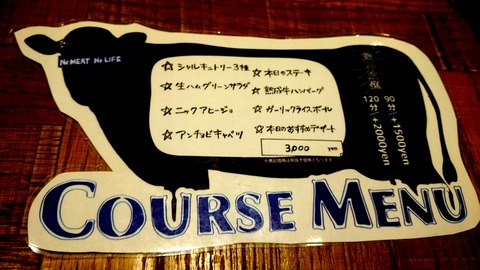 No MEAT No LIFE
☆ シャルキュトリー3種
☆ 生ハムグリーンサラダ
☆ ニックアヒージョ
☆ アンチョビキャベツ
☆ 本日のステーキ
☆ 熟成牛ハンバーグ
☆ ガーリックライスボール
☆ 本日のおすすめデザート
3,000 yen
※表記価格は税抜き価格となります
90分/+1500yen
120分/+2000yen
COURSE MENU